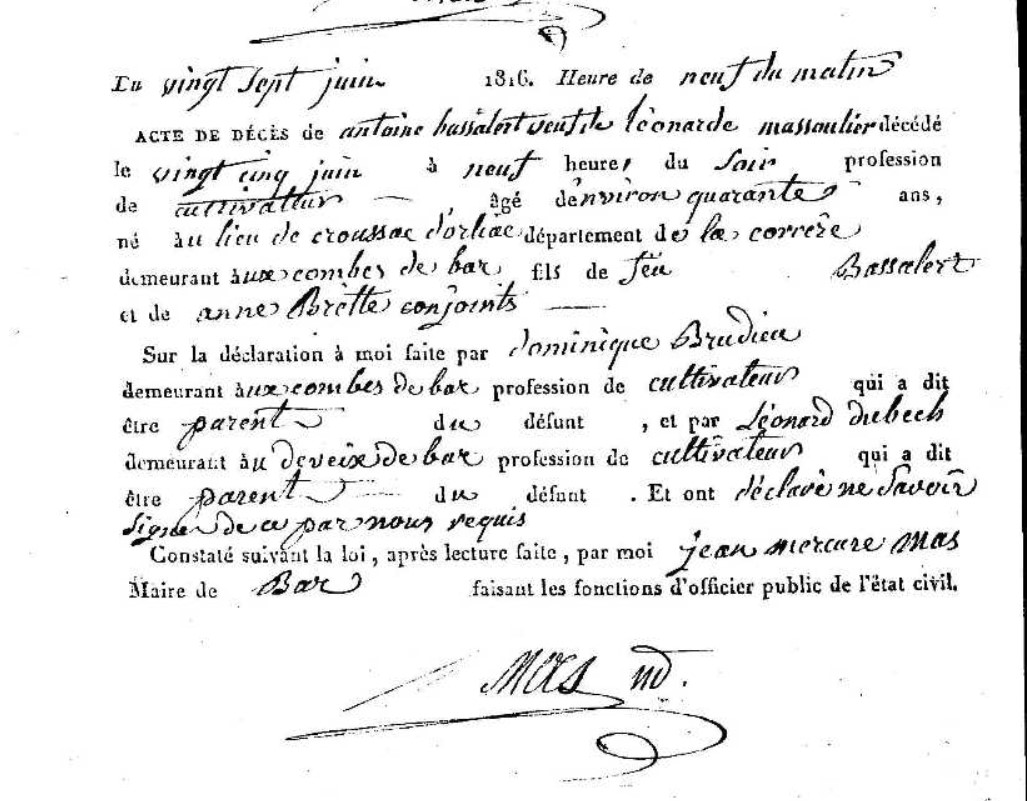 Du vingt sept juin 1816. Heure de neuf du matin
ACTE DE DÉCÈS de antoine bassalert veuf de lèonarde massoulier décédé
le vingt cinq juin à neuf heures du Soir profession
de cultivateur âgé denviron quarante ans,
né au lieu de croussac d'orliac département de la corrèze
demeurant aux combes de bar fils de feu Bassalert
et de anne Brètte conjoints
Sur la déclaration à moi faite par dominique Brudieu
demeurant aux combes de bar profession de cultivateur qui a dit
être parent du défunt , et par Léonard dubech
demeurant au deveix de bar profession de cultivateur qui a dit
être parent du défunt . Et ont déclaré ne Savoir
Signer de ce par nous requis
Constaté suivant la loi, après lecture faite, par moi jean mercure mas
Maire de Bar faisant les fonctions d'officier public de l'état civil.
Mas